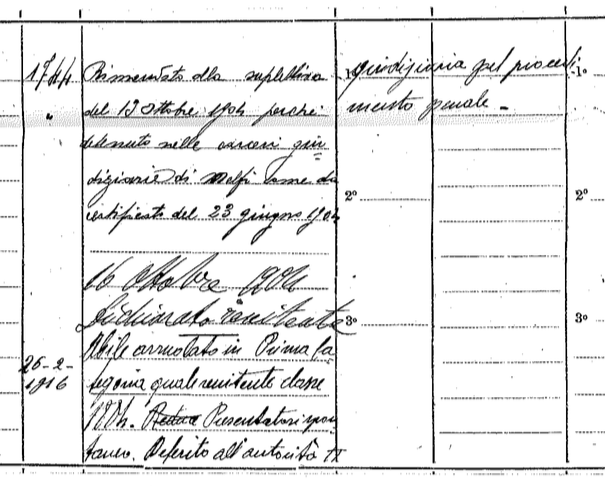 1744
Rimandato alla suplettiva
del 13 Ottobre 1904 perché
detenuto nelle carceri giu=
diziarie di Melfi come da
certificato del 23 giugno 1904
16 Ottobre 1904
Dichiarato renitente
26-2-
1916
Abile arruolato in Prima Ca
tegoria quale renitente classe
1884. Presentatosi spon
taneo. Deferito all'autorità
1º giudiziaria pel procedi
mento penale -
2º
3º
1º
2º
3º